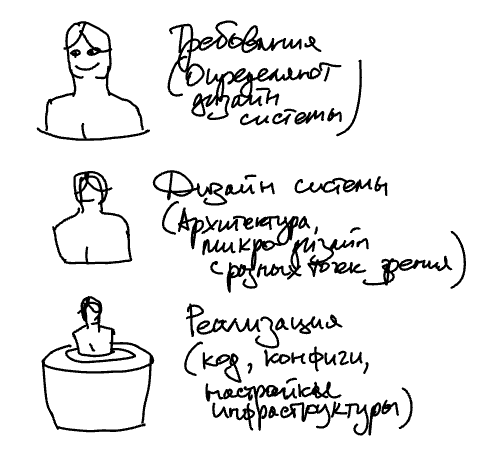 Требования
(Определяют
дизайн
системы)
Дизайн системы
(Архитектура,
микро дизайн
с разных точек зрения)
Реализация
(код, конфиги,
настройки
инфраструктуры)